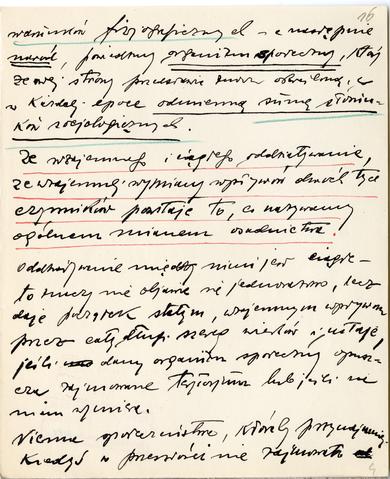 16
warunków fizjograficznych – a następnie
naród, powiedzmy organizm społeczny, który
ze swej strony przedstawia znów określoną, a
w każdej epoce odmienną sumę stosun-
ków socjologicznych.
Ze wzajemnego i ciągłego oddziaływania,
ze wzajemnej wymiany wpływów dwóch tych
czynników powstaje to, co nazywamy
ogólnem mianem osadnictwa.
Oddziaływanie między niemi jest ciągłe –
to znaczy nie objawia się jednorazowo, lecz
daje początek stałym, wzajemnym wpływom
przez cały długi szereg wieków i ustaje,
jeśli dany organizm społeczny opusz-
cza zajmowane terytorjum lub jeśli na
niem wymiera.
Niema społeczeństwa, któreby przynajmniej
kiedyś w przeszłości nie zajmowało